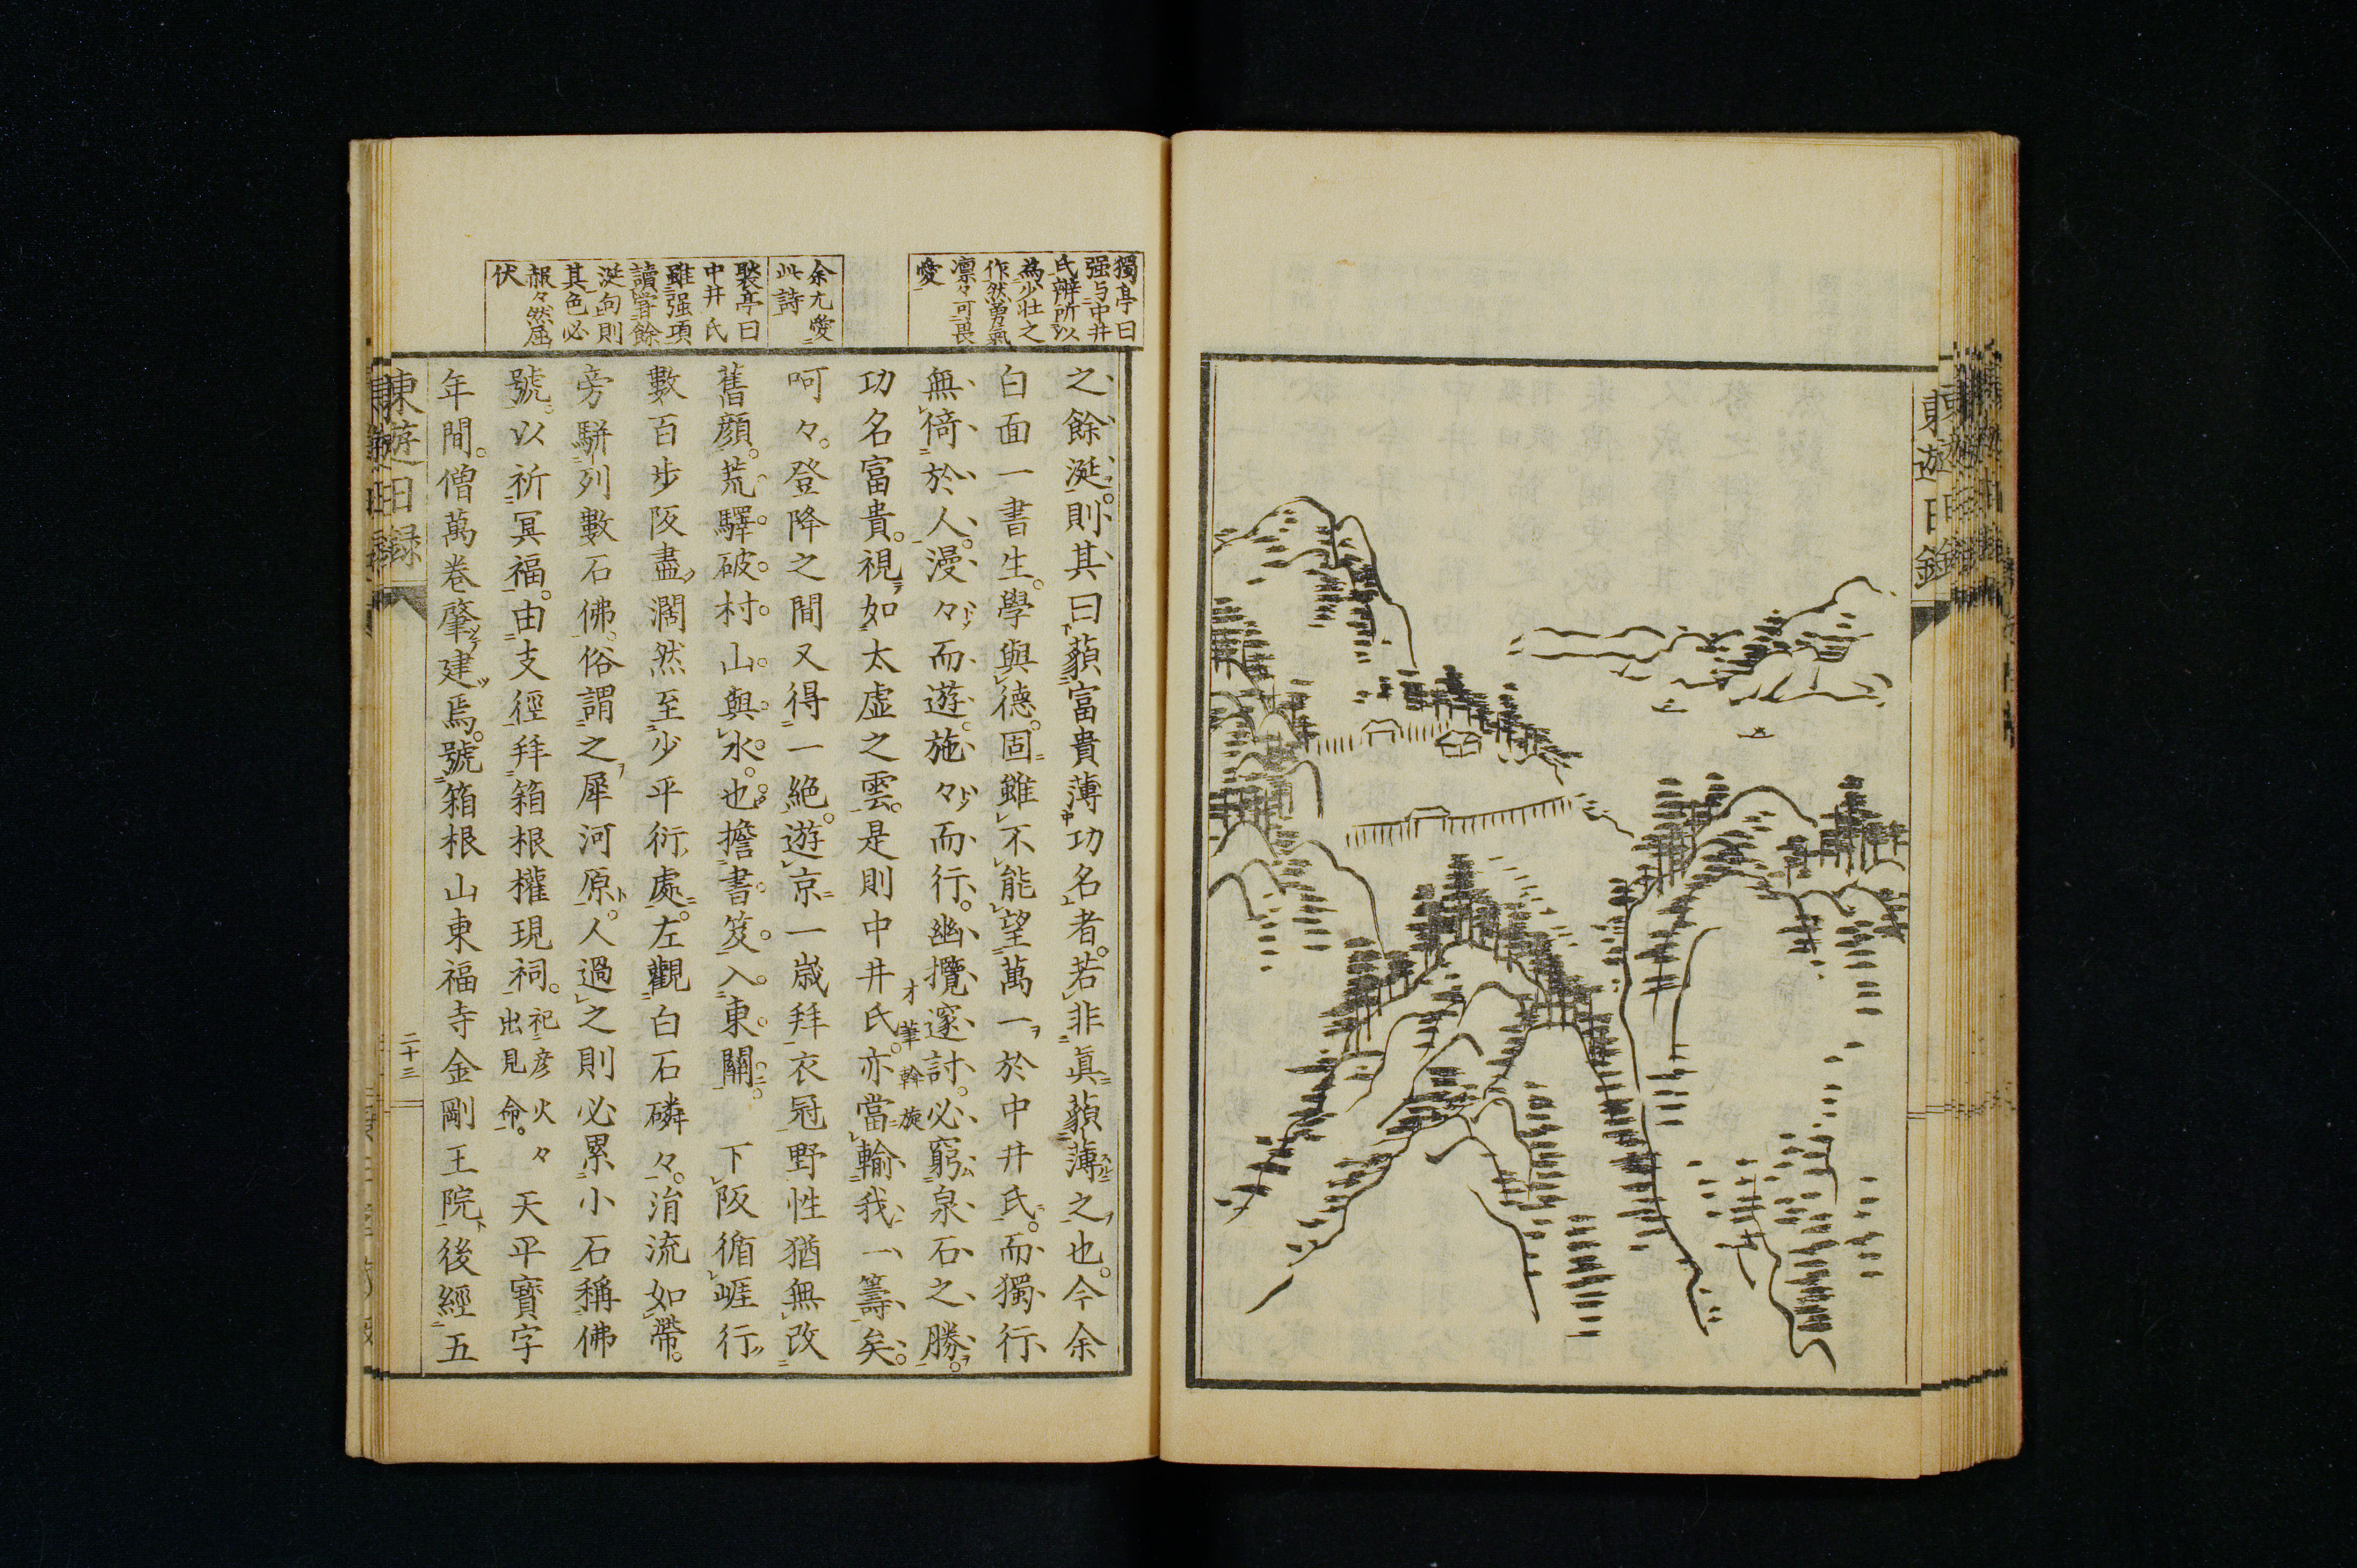 東遊日錄
獨亭曰
强与中井
氏辯所以
為少壮之
作然勇氣
凛々可畏
愛
余尤愛
此詩
聚亭曰
中井氏
雖强項
讀嘗餘
涎句則
其色必
赧々然屈
伏
之餘涎。則其曰藐富貴薄功名者。若非眞藐薄之也。今余
白面一書生。學與德。固雖不能望萬一於中井氏。而獨行
無倚於人。漫々而遊。施々而行。幽攬邃討。必窮泉石之勝。
功名富貴。視如太虛之雲。是則中井氏。亦當輸我一籌矣。
才筆斡旋
呵々。登降之間又得一絶。遊京一歳拜衣冠野性猶無改
舊顔。荒驛破村山與水。也擔書笈入東關。 下阪循崕行
數百步阪盡濶然至少平衍處。左觀白石磷々。淯流如帶。
旁駢列數石佛。俗謂之犀河原。人過之則必累小石稱佛
號。以祈冥福。由支徑拜箱根權現祠。祀彦火々出見命。天平寳字
年間。僧萬卷肇建焉。號箱根山東福寺金剛王院後經五
東遊日録
二十三